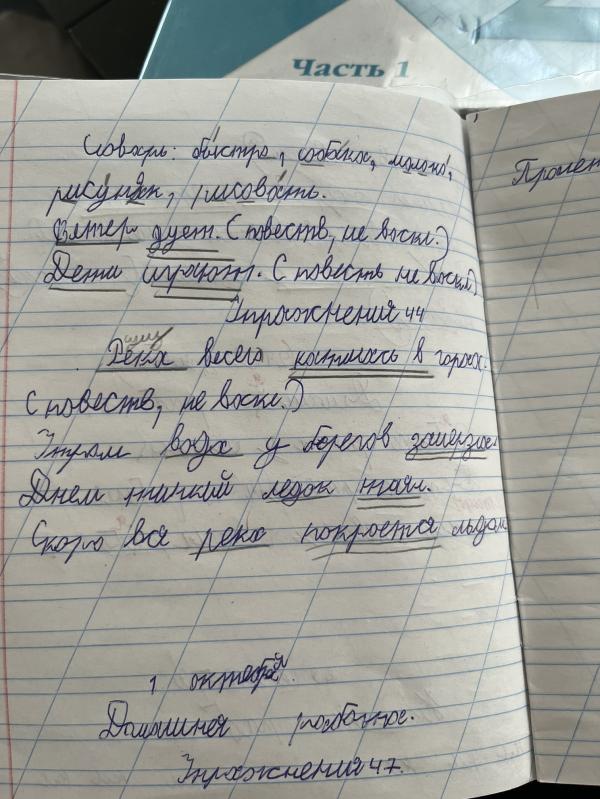 Часть 1
Словарь: быстро, собака, молоко,
рисунок, рисовать.
Ветер дует. (повеств, не воскл.)
Дети играют. (повеств не воскл)
Упражнения 44
Река весело катилась в горах.
(повеств, не воскл.)
Утром вода у берегов замерзае
Днем тонкий ледок таял.
Скоро вся река покроется льдом
1 октября.
Домашнея работа.
Упражнения 47.